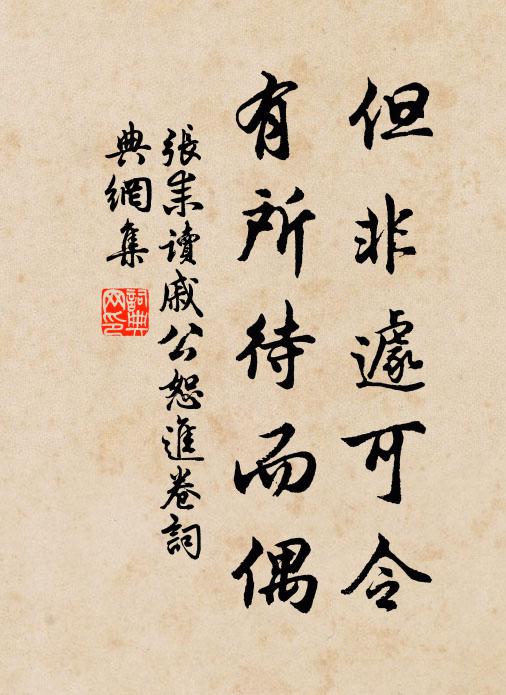 但非遽可令
有所待而偶
張耒讀戚公恕進卷詞
典網集
詞典
网印